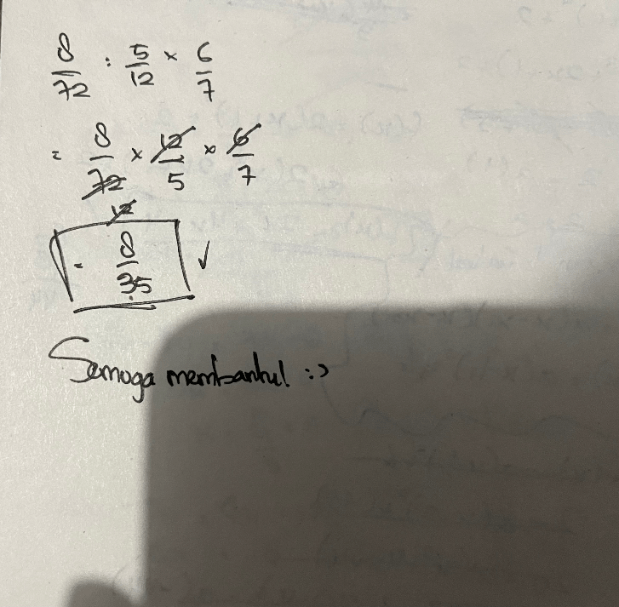 8/72 : 5/12 × 6/7
= 8/72 × 12/5 × 6/7
12
= 8/35 ✓
Semoga membantu! :>